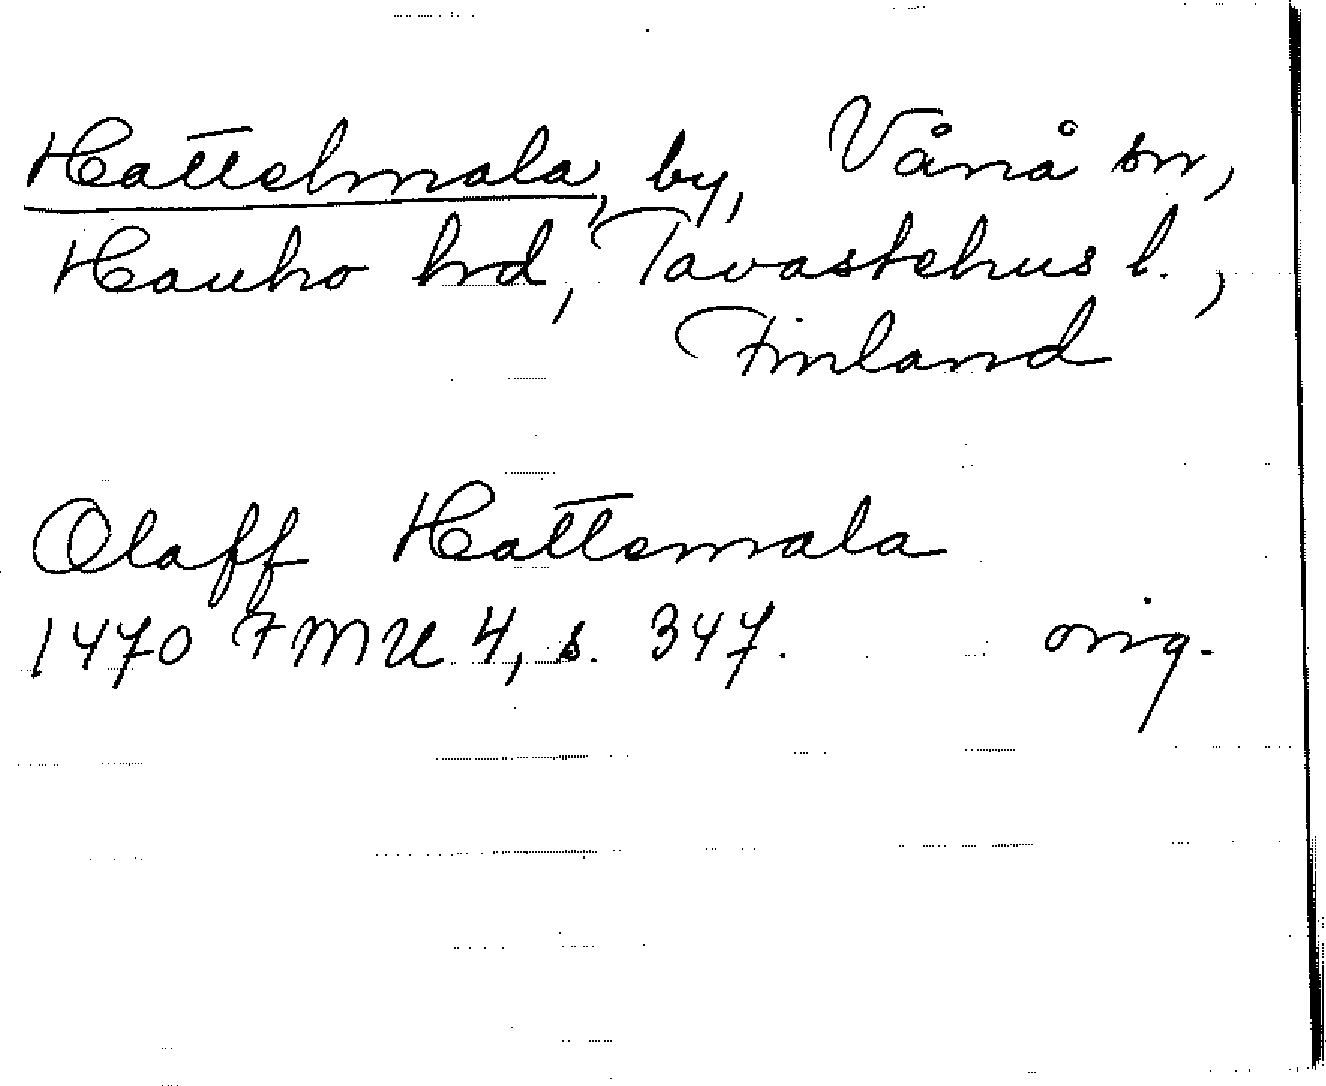 Hattelmala, by, Vånå sn,
Hauho hrd, Tavastehus l.,
Finland
Olaff Hattemala
1470 FMU 4, s. 347. orig.